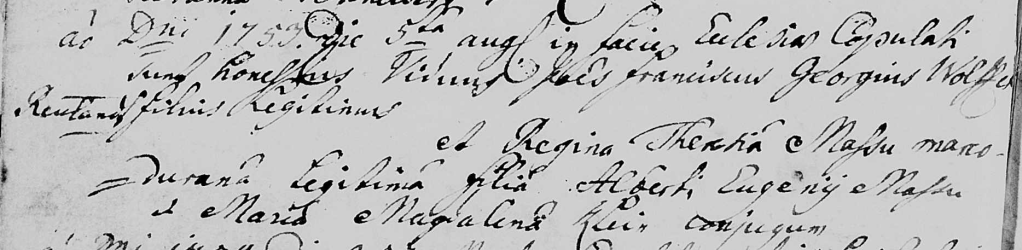 aõ Dni 1753. die 5ta augs in facie Eclesiæ Copulati
sunt honestus Viduus Joẽs franciscus Georgius Wolff ex
filius Legitimus
et Regina Theresia Massu marco-
= durana Legitima filia Alberti Eugenij Massu
et Maria Magalena Klein conjugum